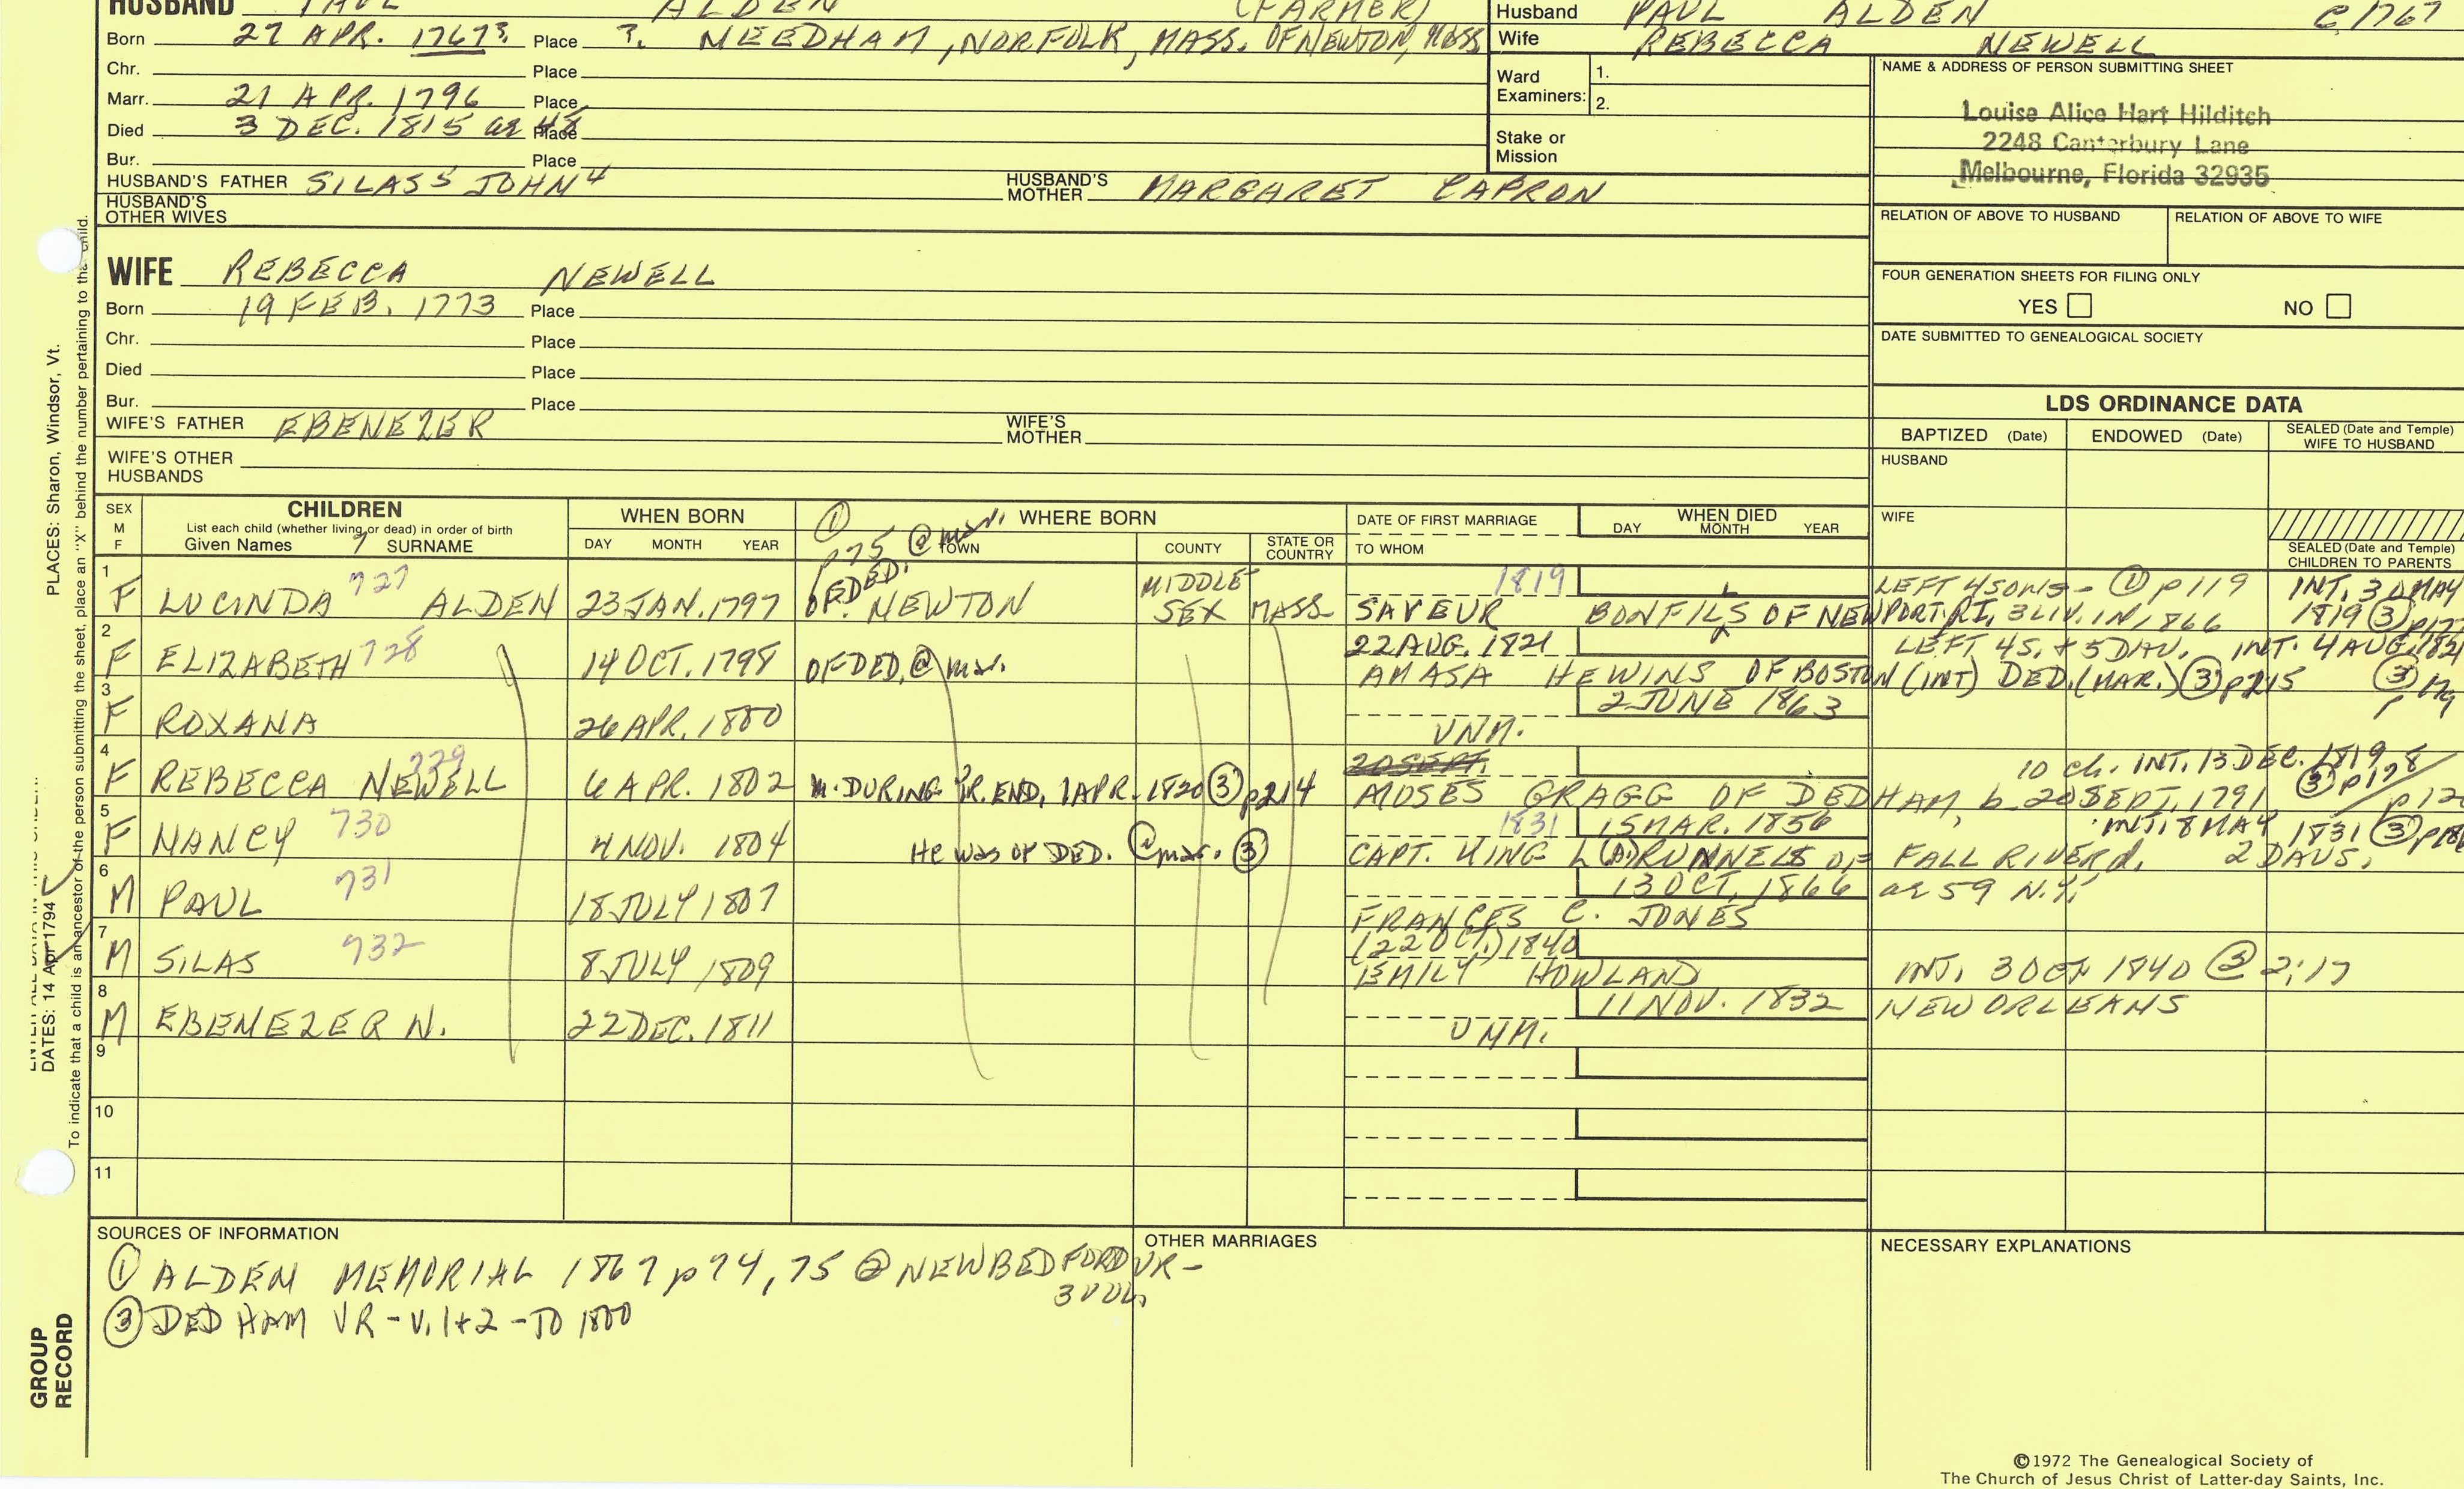 HUSBAND PAUL ALDEN (FARMER)
Born 27 APR. 1767?. Place ?. NEEDHAM, NORFOLK, MASS. OF NEWTON, MASS
Chr. Place
Marr. 21 APR. 1796 Place
Died 3 DEC. 1815 ae 48 Place
Bur. Place
HUSBAND'S FATHER SILAS5 JOHN4 HUSBAND'S MOTHER MARGARET CAPRON
HUSBAND'S OTHER WIVES
Husband PAUL ALDEN C1767
Wife REBECCA NEWELL
Ward Examiners: 1.
2.
Stake or Mission
NAME & ADDRESS OF PERSON SUBMITTING SHEET
Louise Alice Hart Hilditch
2248 Canterbury Lane
Melbourne, Florida 32935
RELATION OF ABOVE TO HUSBAND RELATION OF ABOVE TO WIFE
FOUR GENERATION SHEETS FOR FILING ONLY
YES NO
DATE SUBMITTED TO GENEALOGICAL SOCIETY
WIFE REBECCA NEWELL
Born 19 FEB. 1773 Place
Chr. Place
Died Place
Bur. Place
WIFE'S FATHER EBENEZER WIFE'S MOTHER
WIFE'S OTHER HUSBANDS
LDS ORDINANCE DATA
BAPTIZED (Date) ENDOWED (Date) SEALED (Date and Temple) WIFE TO HUSBAND
HUSBAND
WIFE
SEALED (Date and Temple) CHILDREN TO PARENTS
SEX M F CHILDREN WHEN BORN WHERE BORN DATE OF FIRST MARRIAGE WHEN DIED
List each child (whether living or dead) in order of birth
Given Names 7 SURNAME DAY MONTH YEAR TOWN COUNTY STATE OR COUNTRY TO WHOM DAY MONTH YEAR
① p75 @ mar.
1 F LUCINDA 727 ALDEN 23 JAN. 1797 OF DED. OF. NEWTON MIDDLESEX MASS. 1819
SAVEUR BONFILS OF NEWPORT, RI, 3 LIV. IN 1866
LEFT 4 SONS - ① p119 INT. 30 MAY 1819 ③
2 F ELIZABETH 728 14 OCT. 1798 OF DED. @ mar. 22 AUG. 1821
AMASA HEWINS OF BOSTON (INT) DED. (MAR.) ③ p215
LEFT 4 S. + 5 DAU. INT. 4 AUG. 1821 ③
3 F ROXANA 26 APR. 1800 2 JUNE 1863
UNM.
4 F REBECCA NEWELL 729 6 APR. 1802 M. DURING YR. END. 1 APR. 1820 ③ p214 20 SEPT.
MOSES GRAGG OF DEDHAM, b 20 SEPT. 1791
10 ch. INT. 13 DEC. 1819 ③ p178
5 F NANCY 730 4 NOV. 1804 He was of DED. @ mar. ③ 1831 15 MAR. 1856
CAPT. KING L (D) RUNNELS OF FALL RIVER
INT. 8 MAY 1831 ③ 2 DAUS.
6 M PAUL 731 18 JULY 1807 13 OCT. 1866 ae 59 N.Y.
FRANCES C. JONES
7 M SILAS 932 8 JULY 1809 (22 OCT.) 1840
EMILY HOWLAND INT. 3 OCT 1840 @ 2:17
8 M EBENEZER N. 22 DEC. 1811 11 NOV. 1832 NEW ORLEANS
UNM.
9
10
11
SOURCES OF INFORMATION
① ALDEN MEMORIAL 1867 p 74, 75 @ NEW BEDFORD VR-
3 VOL.
③ DEDHAM VR - V. 1+2 - TO 1800
OTHER MARRIAGES
NECESSARY EXPLANATIONS
©1972 The Genealogical Society of
The Church of Jesus Christ of Latter-day Saints, Inc.
PLACES: Sharon, Windsor, Vt.
DATES: 14 Apr 1794
To indicate that a child is an ancestor of the person submitting the sheet, place an "X" behind the number pertaining to that child.
GROUP
RECORD